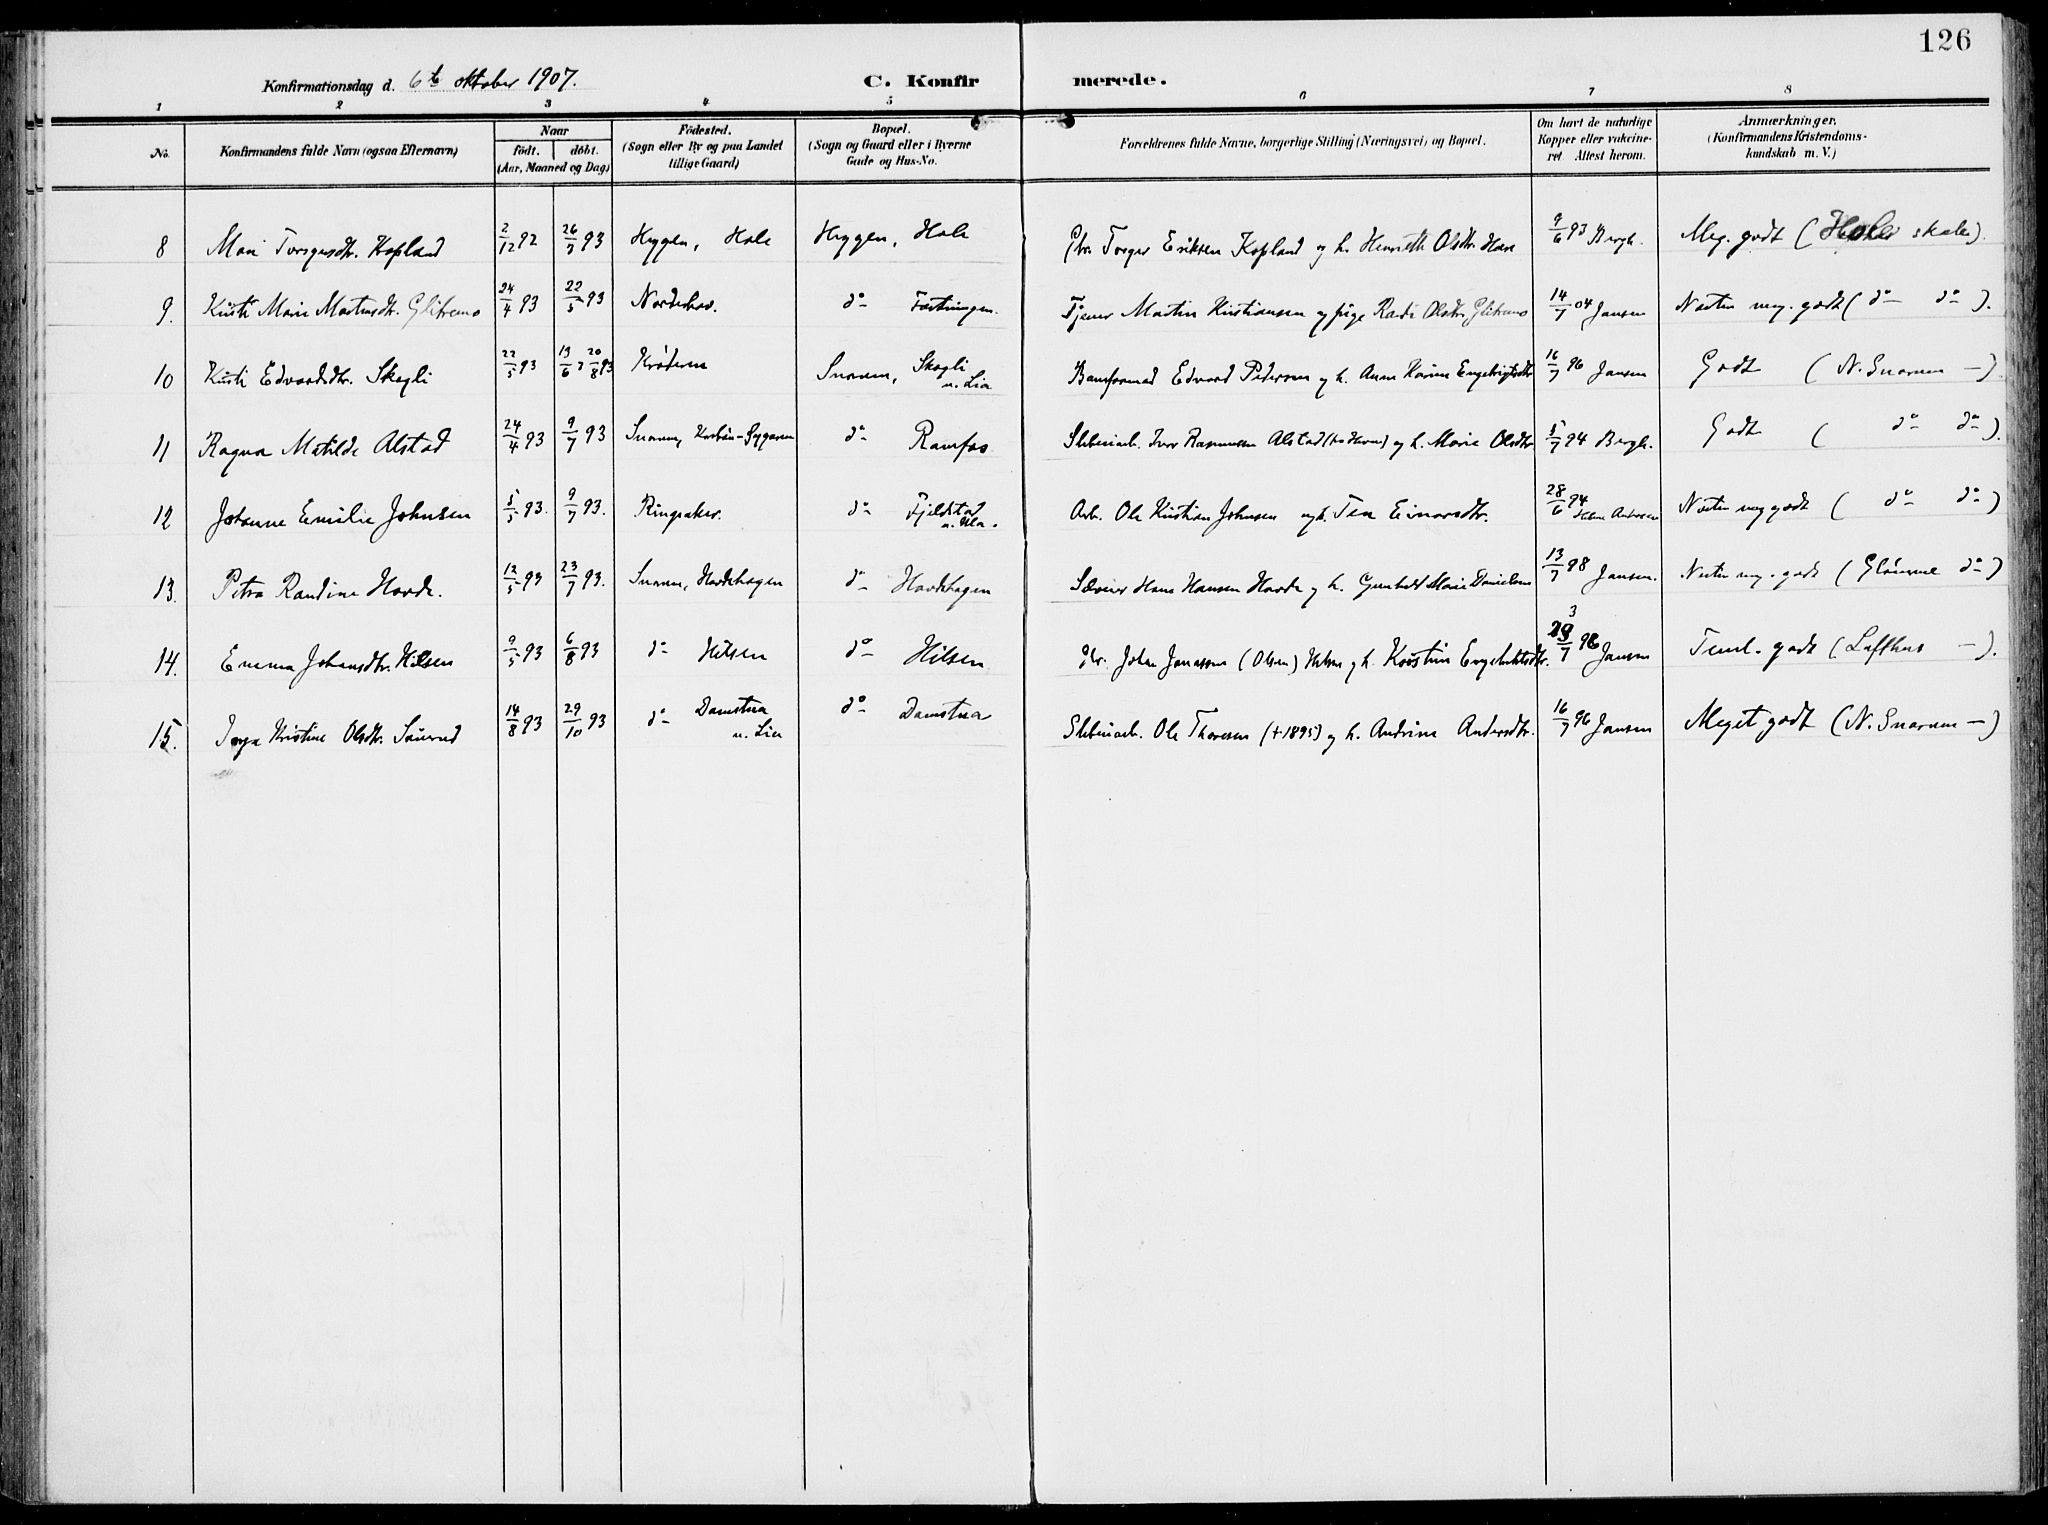 126
Konfirmationsdag d. 6te oktober 1907.
C. Konfirmerede.
1 2 3 4 5 6 7 8
No. Konfirmandens fulde Navn (ogsaa Efternavn)
Naar
födt. döbt.
(Aar, Maaned og Dag)
Födested.
(Sogn eller By og paa Landet
tillige Gaard)
Bopæl.
(Sogn og Gaard eller i Byerne
Gade og Hus-No.
Forældrenes fulde Navne, borgerlige Stilling (Næringsvei) og Bopæl.
Om havt de naturlige
Kopper eller vakcine-
ret. Attest herom.
Anmærkninger.
(Konfirmandens Kristendoms-
kundskab m. V.)
8 Mari Torgersdtr. Kopland 2/12 92 26/3 93 Hyggen, Hole Hyggen, Hole Torger Eriksen Kopland og h. Henrette Olsdtr. 9/6 93 Bergh. Meg. godt (Holes skole).
9. Kirsti Marie Martinsdtr. Glitremo 24/4 93 22/5 93 Norderhov. do Tjener Martin Kristiansen og pige Randi Olsdtr. Glitremo 14/7 04 Jansen Næsten meg. godt (do do).
10 Kirsti Edvardsdtr. Skogli 22/5 93 13/6 20/8 93 Kröderen Snarum, Skogli u. Lia Edvard Pedersen og h. Anne Karine Engebrigtsdtr 16/7 96 Jansen Godt (N. Snarum —)
11 Ragna Matilde Alstad 24/4 93 9/7 93 Snarum, do Ramfos Sliberiarb. Iver Rasmussen Alstad og h. Marie Olsdtr. 5/7 94 Bergh. Godt (do do).
12 Johanne Emilie Johnsen 5/5 93. 9/7 93. Ringsaker. do Fjeldstad Arb. Ole Kristian Johnsen og h. Tea Einarsdtr. 28/6 94 Andersen Næsten meg godt (do do)
13. Petra Randine Hovde. 12/5 93 23/7 93. Snarum, Hovdehagen do Hovdehagen Hans Hansen Hovde og h. Gunhild Marie Danielsen 13/7 98 Jansen. Næsten meg. godt (Glömme do)
14. Emma Johansdtr. Hilsen 9/5 93 6/8 93 do Hilsen do Hilsen Johan Jonassen (Olsen) Hilsen og h. Kirstine Engebretsdtr. 3/7 96 Jansen Teml. godt (Lofthus —).
15. Inga Kristine Olsdtr. 14/8 93 29/10 93 do Damstua u. Lia do Damstua Sliberiarb. Ole Thoresen (+1895) og h. Andrine Andersdtr. 16/7 96 Jansen Meget godt (N. Snarum —)